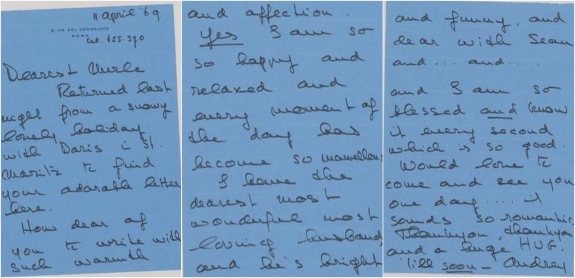 11 April 69
ROMA
Tel. 655.370
Dearest Uncle
Returned last
night from a snowy
lovely holiday
with Doris in St.
Moritz to find
your adorable letter
here.
How dear of
you to write with
such warmth
and affection.
Yes I am so
so happy and
relaxed and
every moment of
the day has
become so marvellous
I have the
dearest most
wonderful most
loving husband,
and he's bright
and funny, and
dear with Sean
and ... and ....
and I am so
blessed and know
it every second
which is so good.
Would love to
come and see you
one day .... it
sounds so romantic
Thankyou, thankyou
and a huge HUG!
'till soon - Audrey